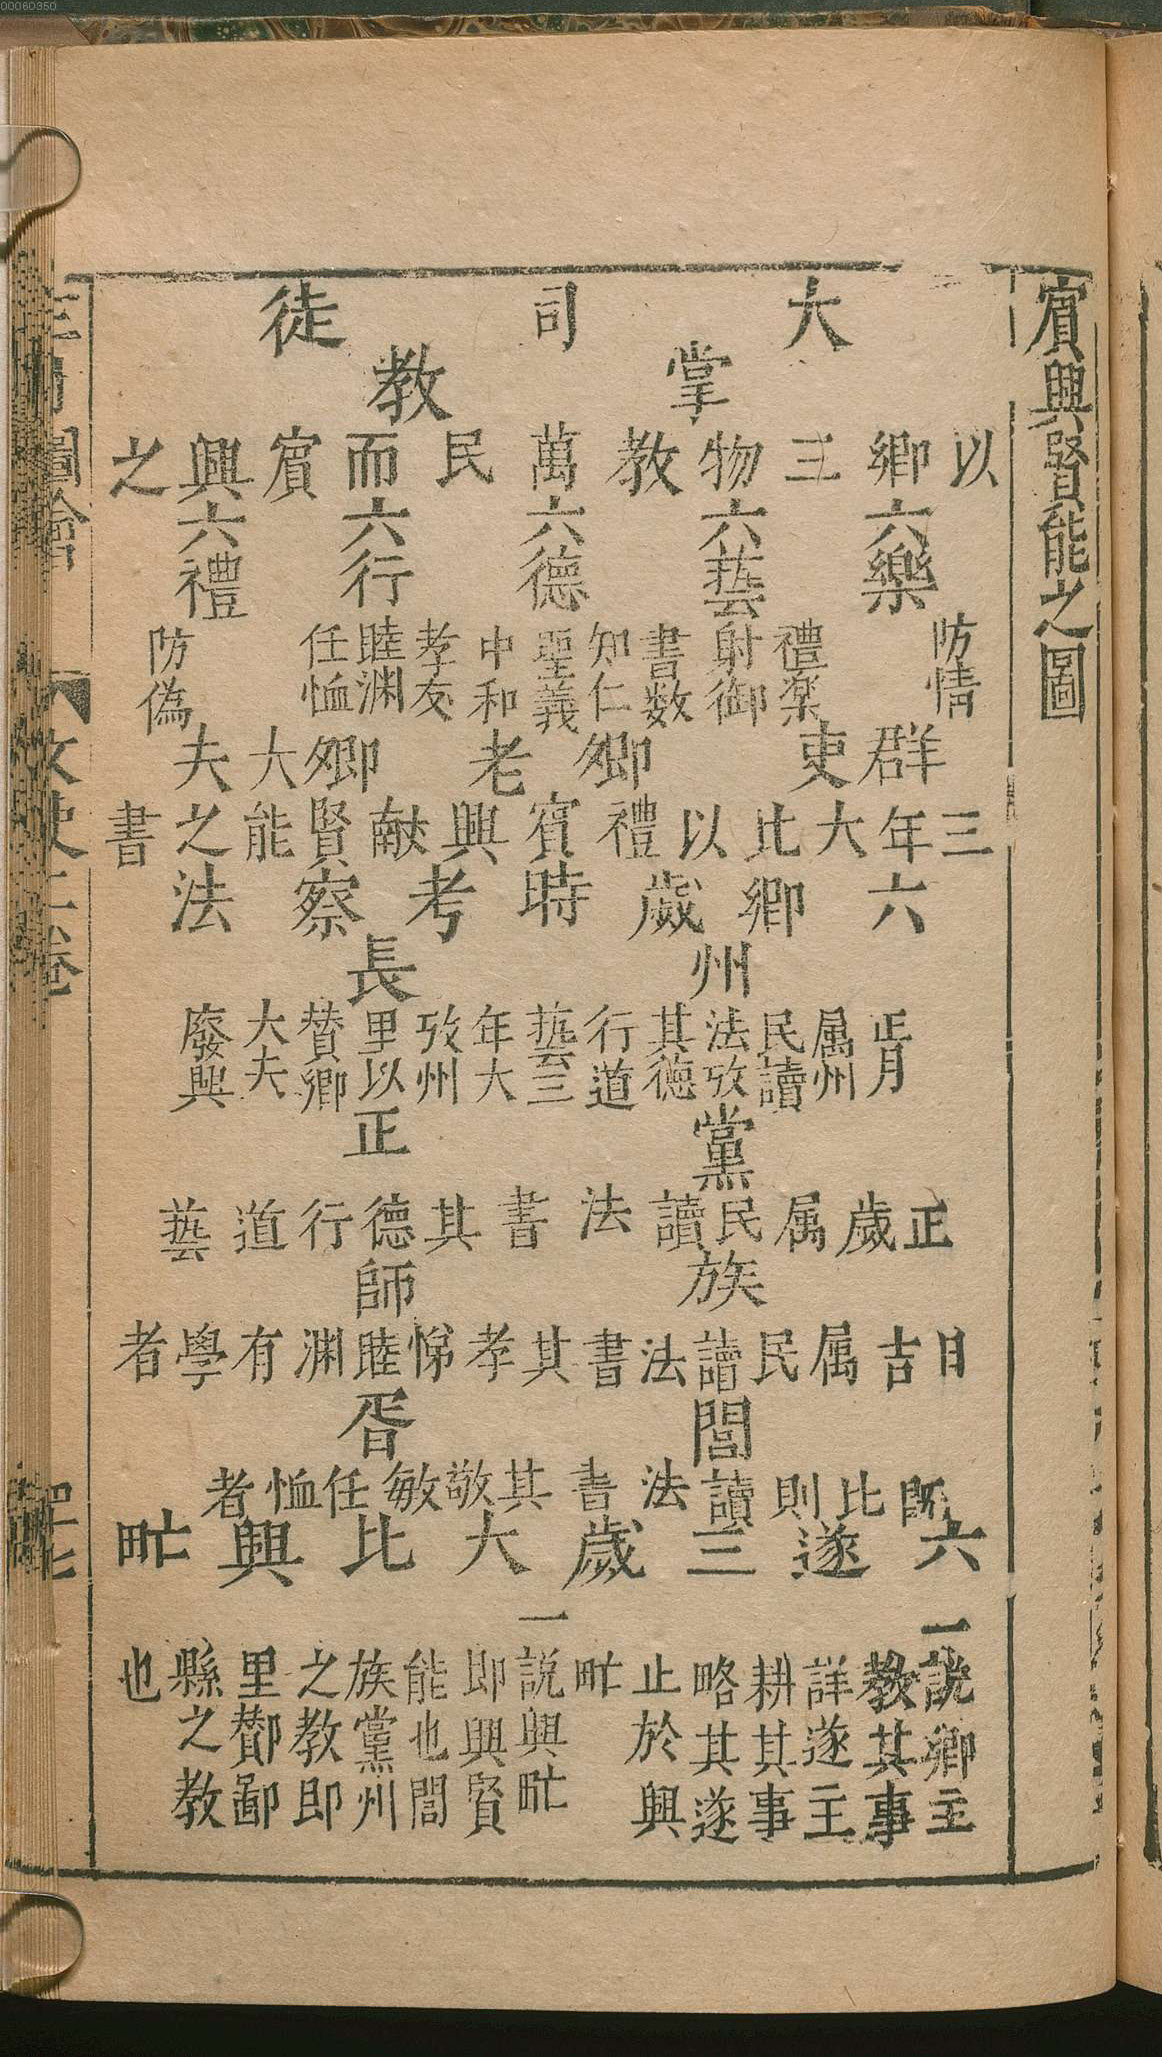 00060350
賔興賢能之圖
大司徒
掌教
以鄉三物教萬民而賔興之
六樂 六藝 六德 六行 六禮
防情
禮楽
射御
書数
知仁
聖義
中和
孝友
睦渊
任恤
防偽
群吏 鄉老 鄉大夫
三年大比以禮賔興献賢能之書
六鄉歲時考察法
州長
正月
属州
民讀
法攷
其德
行道
藝三
年大
攷州
里以
賛卿
大夫
廢興
黨正
正歲属民讀法書其德行道藝
族師
月吉属民讀法書其孝悌睦渊有學者
閭胥
既比則讀法書其敬敏任恤者
六遂三歲大比興甿
一說鄉主
教其事
詳遂主
耕其事
略其遂
止於興
甿
一說興甿
即興賢
能也閭
族黨州
之教即
里酇鄙
縣之教
也
圖會